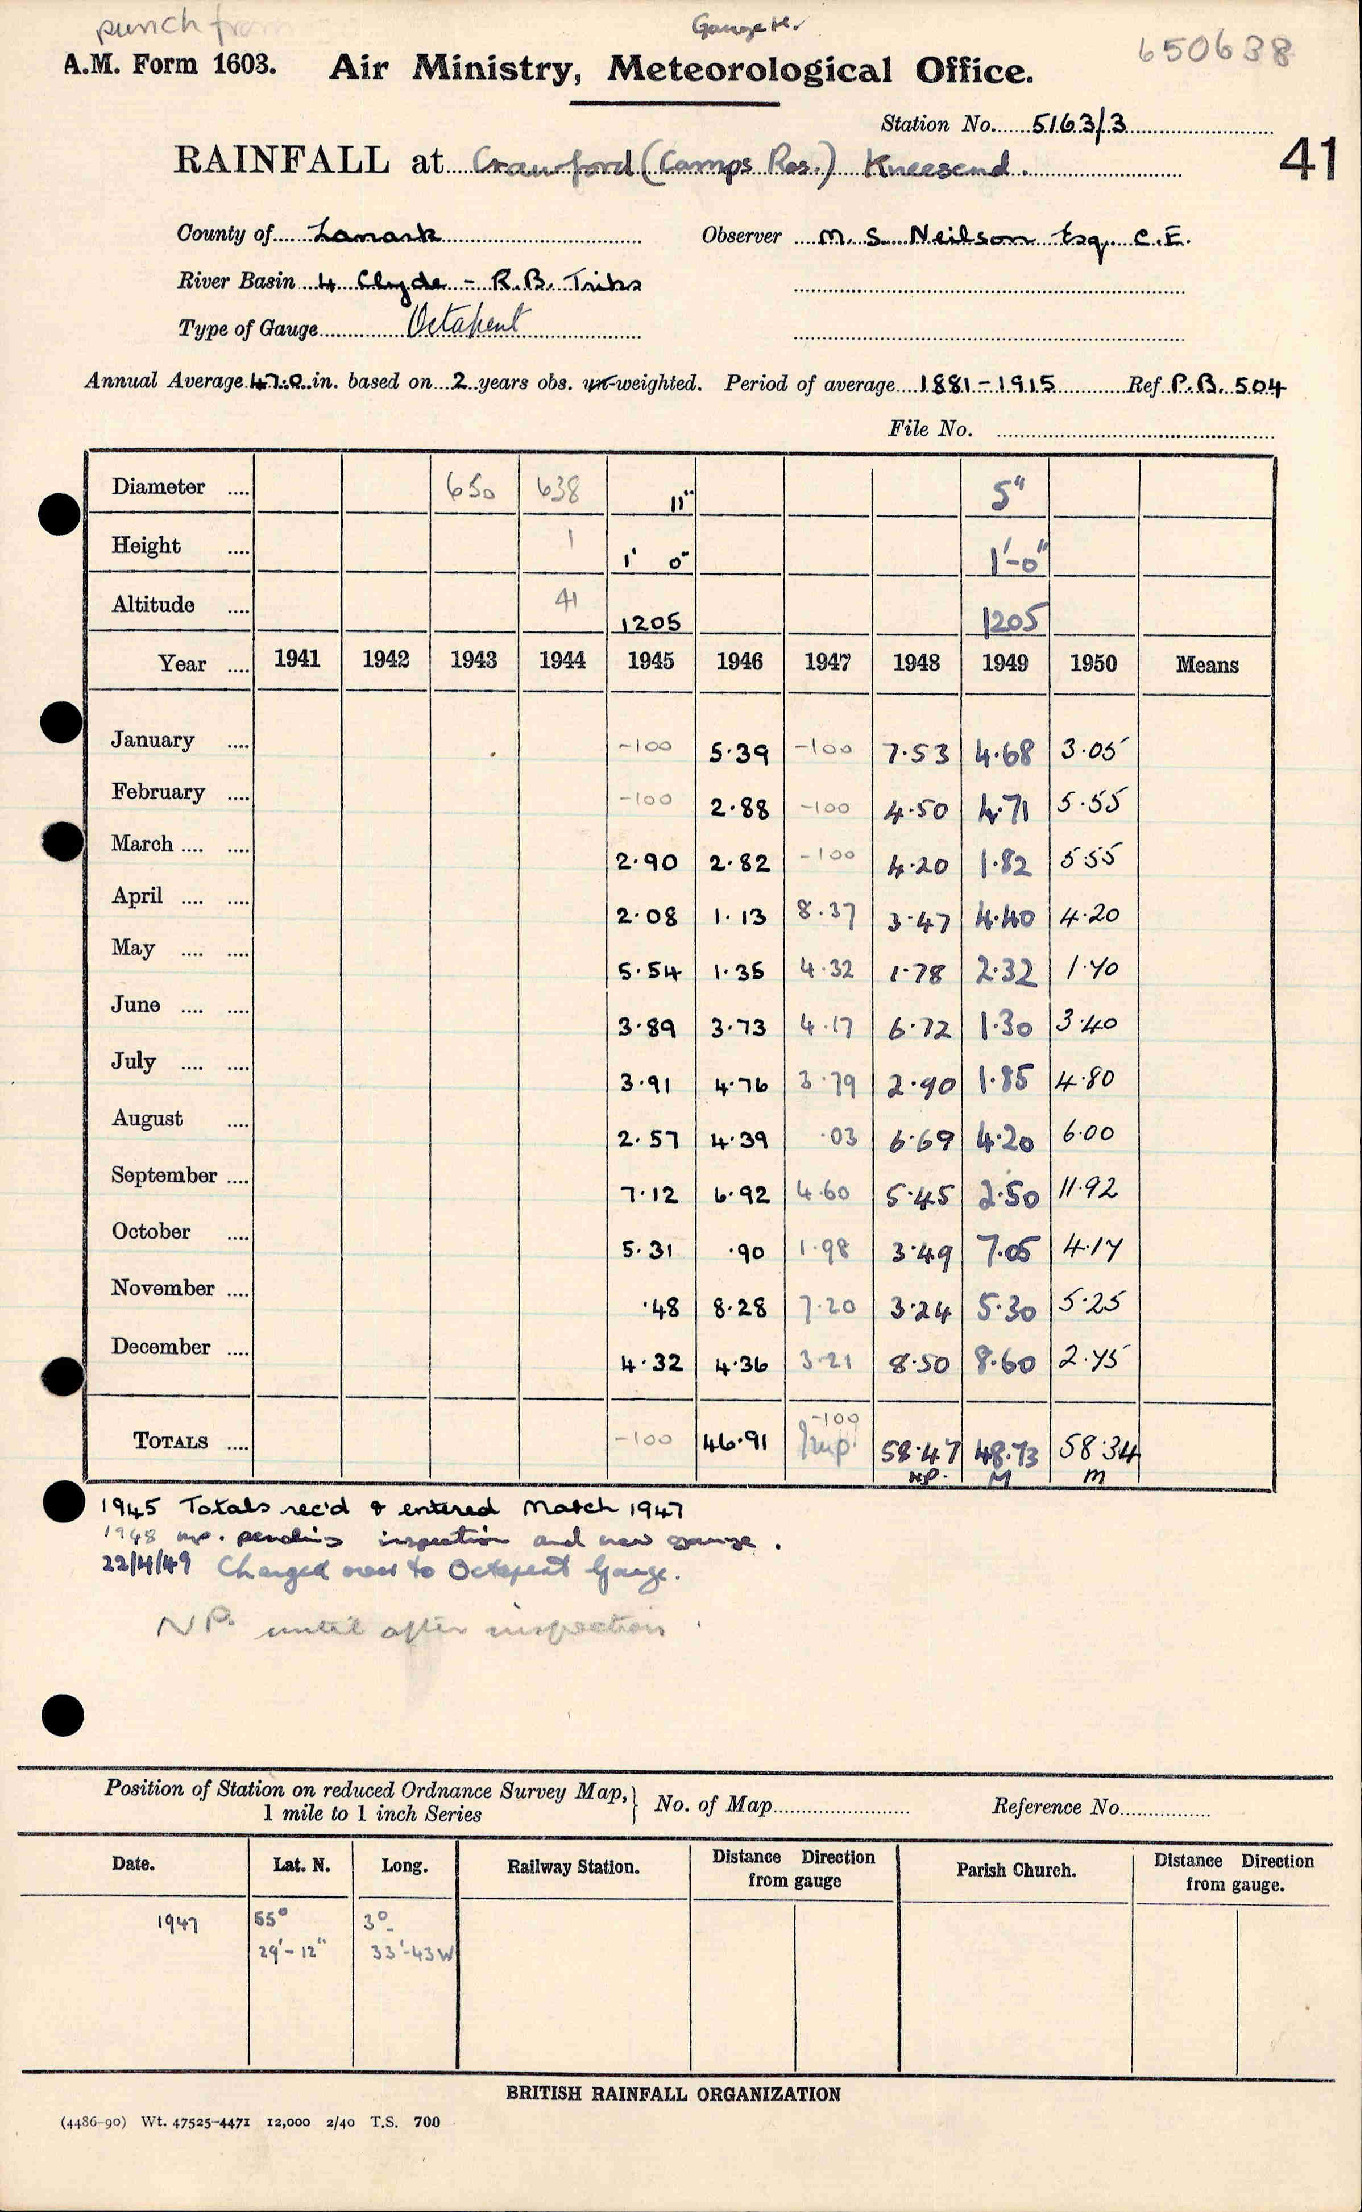 punch from
Gauge H.
650638
A.M. Form 1603. Air Ministry, Meteorological Office.
Station No. 5163/3
41
RAINFALL at Crawford (Camps Res.) Kneesend.
County of Lanark Observer M. S. Neilson Esq. C.E.
River Basin 4 Clyde - R.B. Tribs
Type of Gauge Octapent
Annual Average 47.0 in. based on 2 years obs. un-weighted. Period of average 1881-1915 Ref P.B. 504
File No.
Diameter .... 650 638 11" 5"
Height .... 1 1' 0" 1'-0"
Altitude .... 41 1205 1205
Year .... 1941 1942 1943 1944 1945 1946 1947 1948 1949 1950 Means
January .... -100 5.39 -100 7.53 4.68 3.05
February .... -100 2.88 -100 4.50 4.71 5.55
March .... .... 2.90 2.82 -100 4.20 1.82 5.55
April .... .... 2.08 1.13 8.37 3.47 4.40 4.20
May .... .... 5.54 1.35 4.32 1.78 2.32 1.70
June .... .... 3.89 3.73 4.17 6.72 1.30 3.40
July .... .... 3.91 4.76 3.79 2.90 1.85 4.80
August .... 2.57 4.39 .03 6.69 4.20 6.00
September .... 7.12 6.92 4.60 5.45 2.50 11.92
October .... 5.31 .90 1.98 3.49 7.05 4.17
November .... .48 8.28 7.20 3.24 5.30 5.25
December .... 4.32 4.36 3.21 8.50 8.60 2.75
-100
TOTALS .... -100 46.91 Imp. 58.47 48.73 58.34
NP. M M
1945 Totals rec'd & entered March 1947
1948 np. pending inspection and new gauge.
22/4/49 Changed over to Octapent Gauge.
NP. until after inspection.
Position of Station on reduced Ordnance Survey Map, } No. of Map Reference No.
1 mile to 1 inch Series
Date. Lat. N. Long. Railway Station. Distance Direction from gauge Parish Church. Distance Direction from gauge.
1947 55° 3°-
29'-12" 33'-43W
BRITISH RAINFALL ORGANIZATION
(4486-90) Wt. 47525-4471 12,000 2/40 T.S. 700